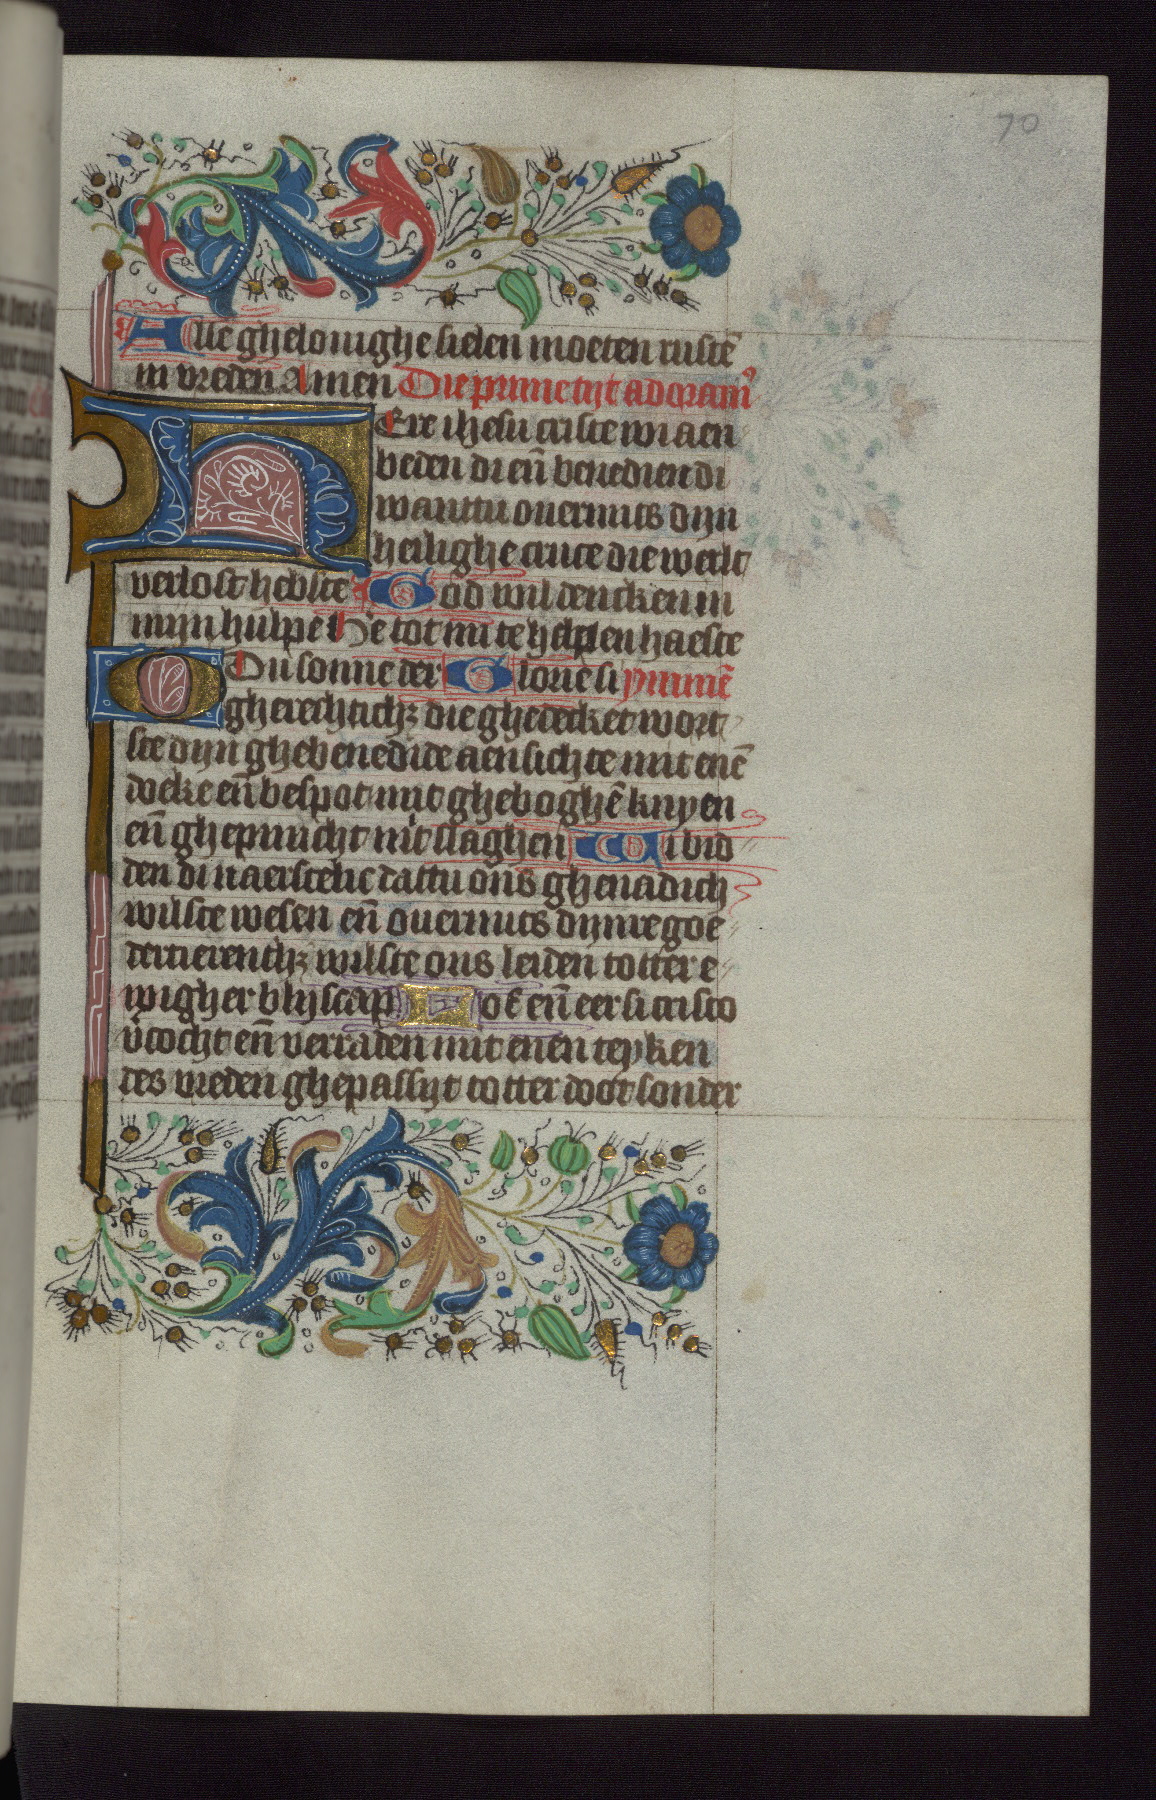 70
Alle ghelouighe sielen moeten rustē
in vreden Amen Die prime tijt adoram⁹
HEre ihesu criste wi aen
beden di eñ benedien di
wanttu ouermits dijn
heilighe cruce die werlt
verlost hebste God wil dencken in
mijn hulpe He e tot mi te helpen haeste
O Du sonne der Glorie si ymmē
gherechticħʒ die ghedecket wort
ste dijn ghebenedide aensichte mit enē
doeke eñ bespot mit gheboghē knyen
eñ ghepinicht mit slaghen Wi bid
den di naerstelic dattu ons ghenadich
wilste wesen eñ ouermits dijnre goe
dertierenticħʒ wilste ons leiden totter e
wigher blyscap Lof eñ eer si cristo
v̄cocht eñ verraden mit enen teyken
des vreden ghepassijt totter doot sonder